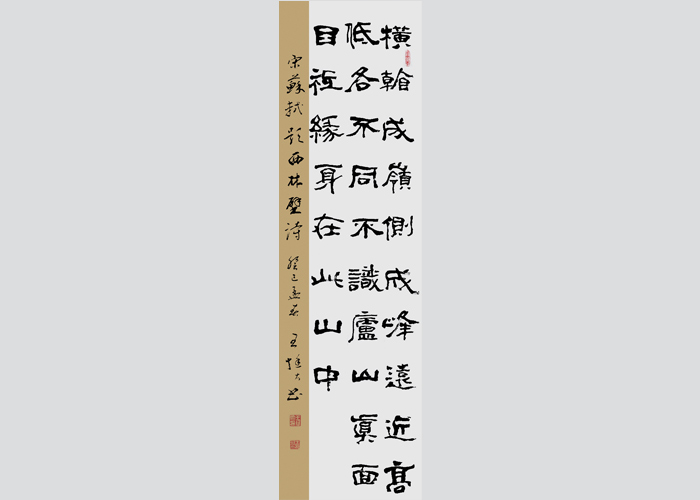 橫看成嶺側成峰遠近高
低各不同不識廬山眞面
目祗緣身在此山中
宋蘇軾題西林壁詩 癸巳 王 大書